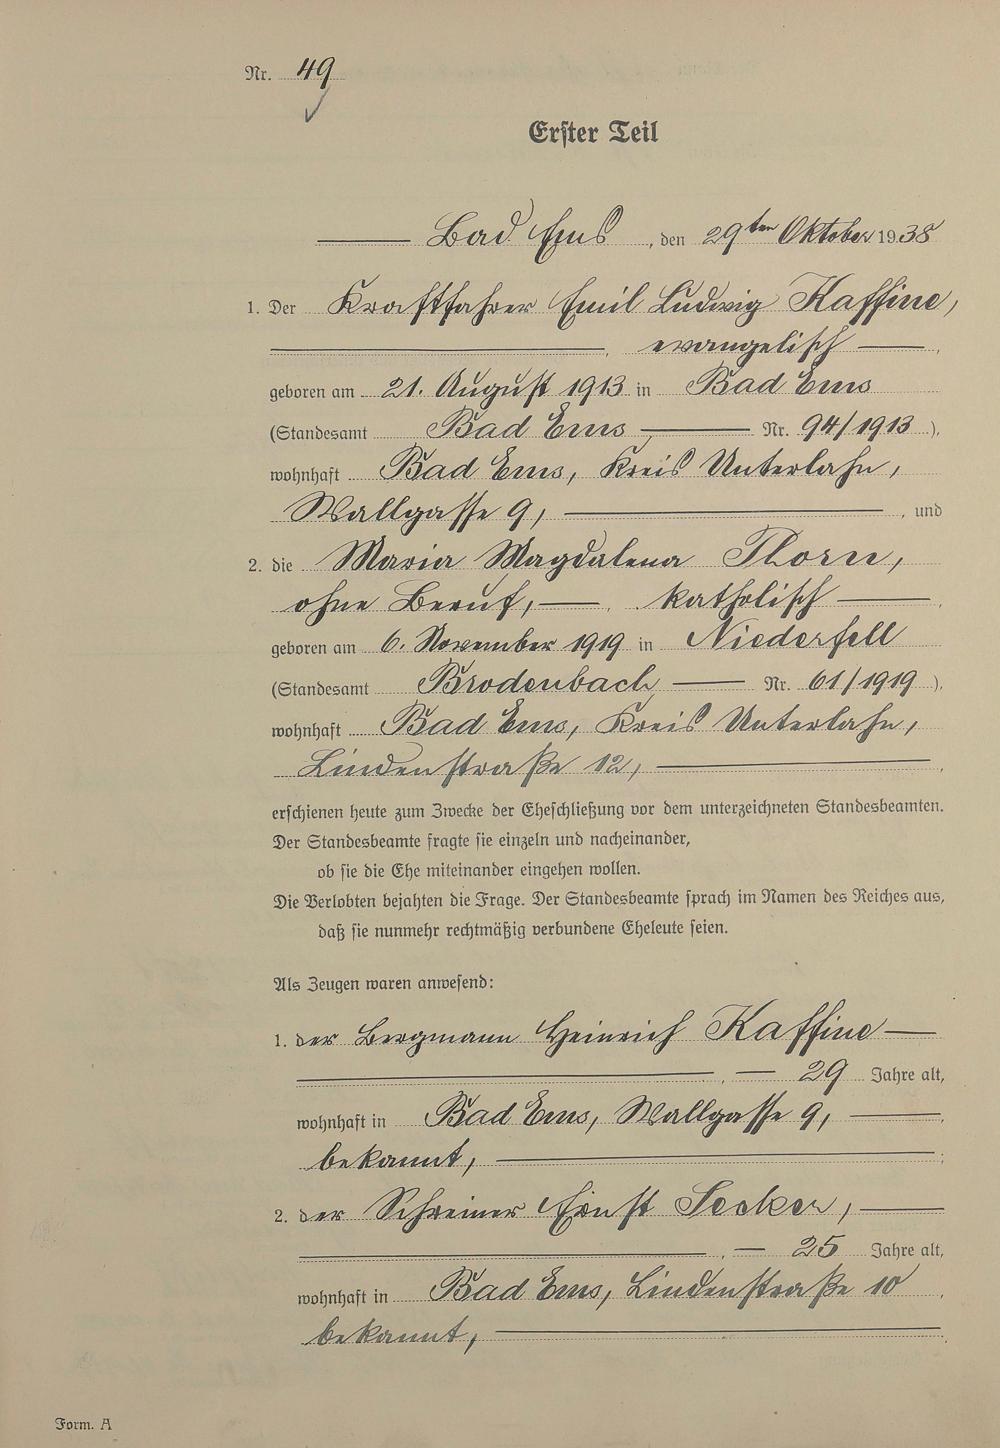 Nr. 49
Erster Teil
Bad Ems, den 29ten Oktober 1938
1. Der Kraftfahrer Emil Ludwig Kaffine,
, evangelisch ,
geboren am 21. August 1913 in Bad Ems
(Standesamt Bad Ems Nr. 94/1913),
wohnhaft Bad Ems, Kreis Unterlahn,
Wallgasse 9, , und
2. die Maria Magdalena Thorn,
ohne Beruf, katholisch ,
geboren am 6. November 1919 in Niederfell
(Standesamt Brodenbach Nr. 61/1919),
wohnhaft Bad Ems, Kreis Unterlahn,
Lindenstraße 12, ,
erschienen heute zum Zwecke der Eheschließung vor dem unterzeichneten Standesbeamten.
Der Standesbeamte fragte sie einzeln und nacheinander,
ob sie die Ehe miteinander eingehen wollen.
Die Verlobten bejahten die Frage. Der Standesbeamte sprach im Namen des Reiches aus,
daß sie nunmehr rechtmäßig verbundene Eheleute seien.
Als Zeugen waren anwesend:
1. der Bergmann Heinrich Kaffine
, 29 Jahre alt,
wohnhaft in Bad Ems, Wallgasse 9, ,
bekannt, ;
2. der Schreiner Ernst Secker,
, 25 Jahre alt,
wohnhaft in Bad Ems, Lindenstraße 10 ,
bekannt, .
Form. A